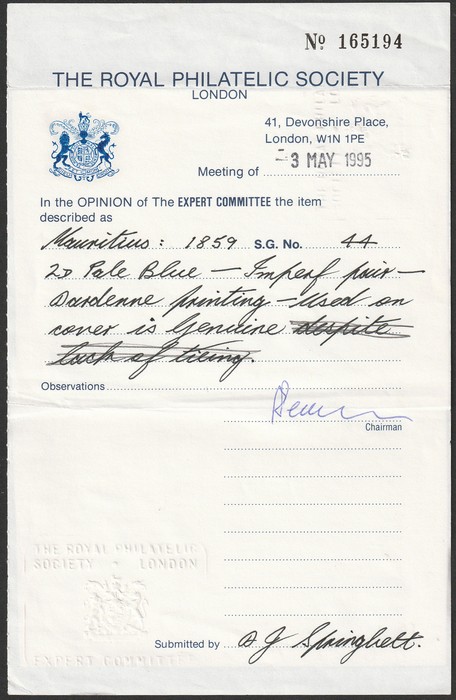 Nº 165194
THE ROYAL PHILATELIC SOCIETY
LONDON
41, Devonshire Place,
London, W1N 1PE
Meeting of -3 MAY 1995
In the OPINION of The EXPERT COMMITTEE the item
described as
Mauritius: 1859 S.G. No. 44
2D Pale Blue - Imperf pair -
Dardenne printing - used on
cover is Genuine despite
lack of tieing.
Observations
Chairman
THE ROYAL PHILATELIC
SOCIETY LONDON
EXPERT COMMITTEE
Submitted by D J Springbett.